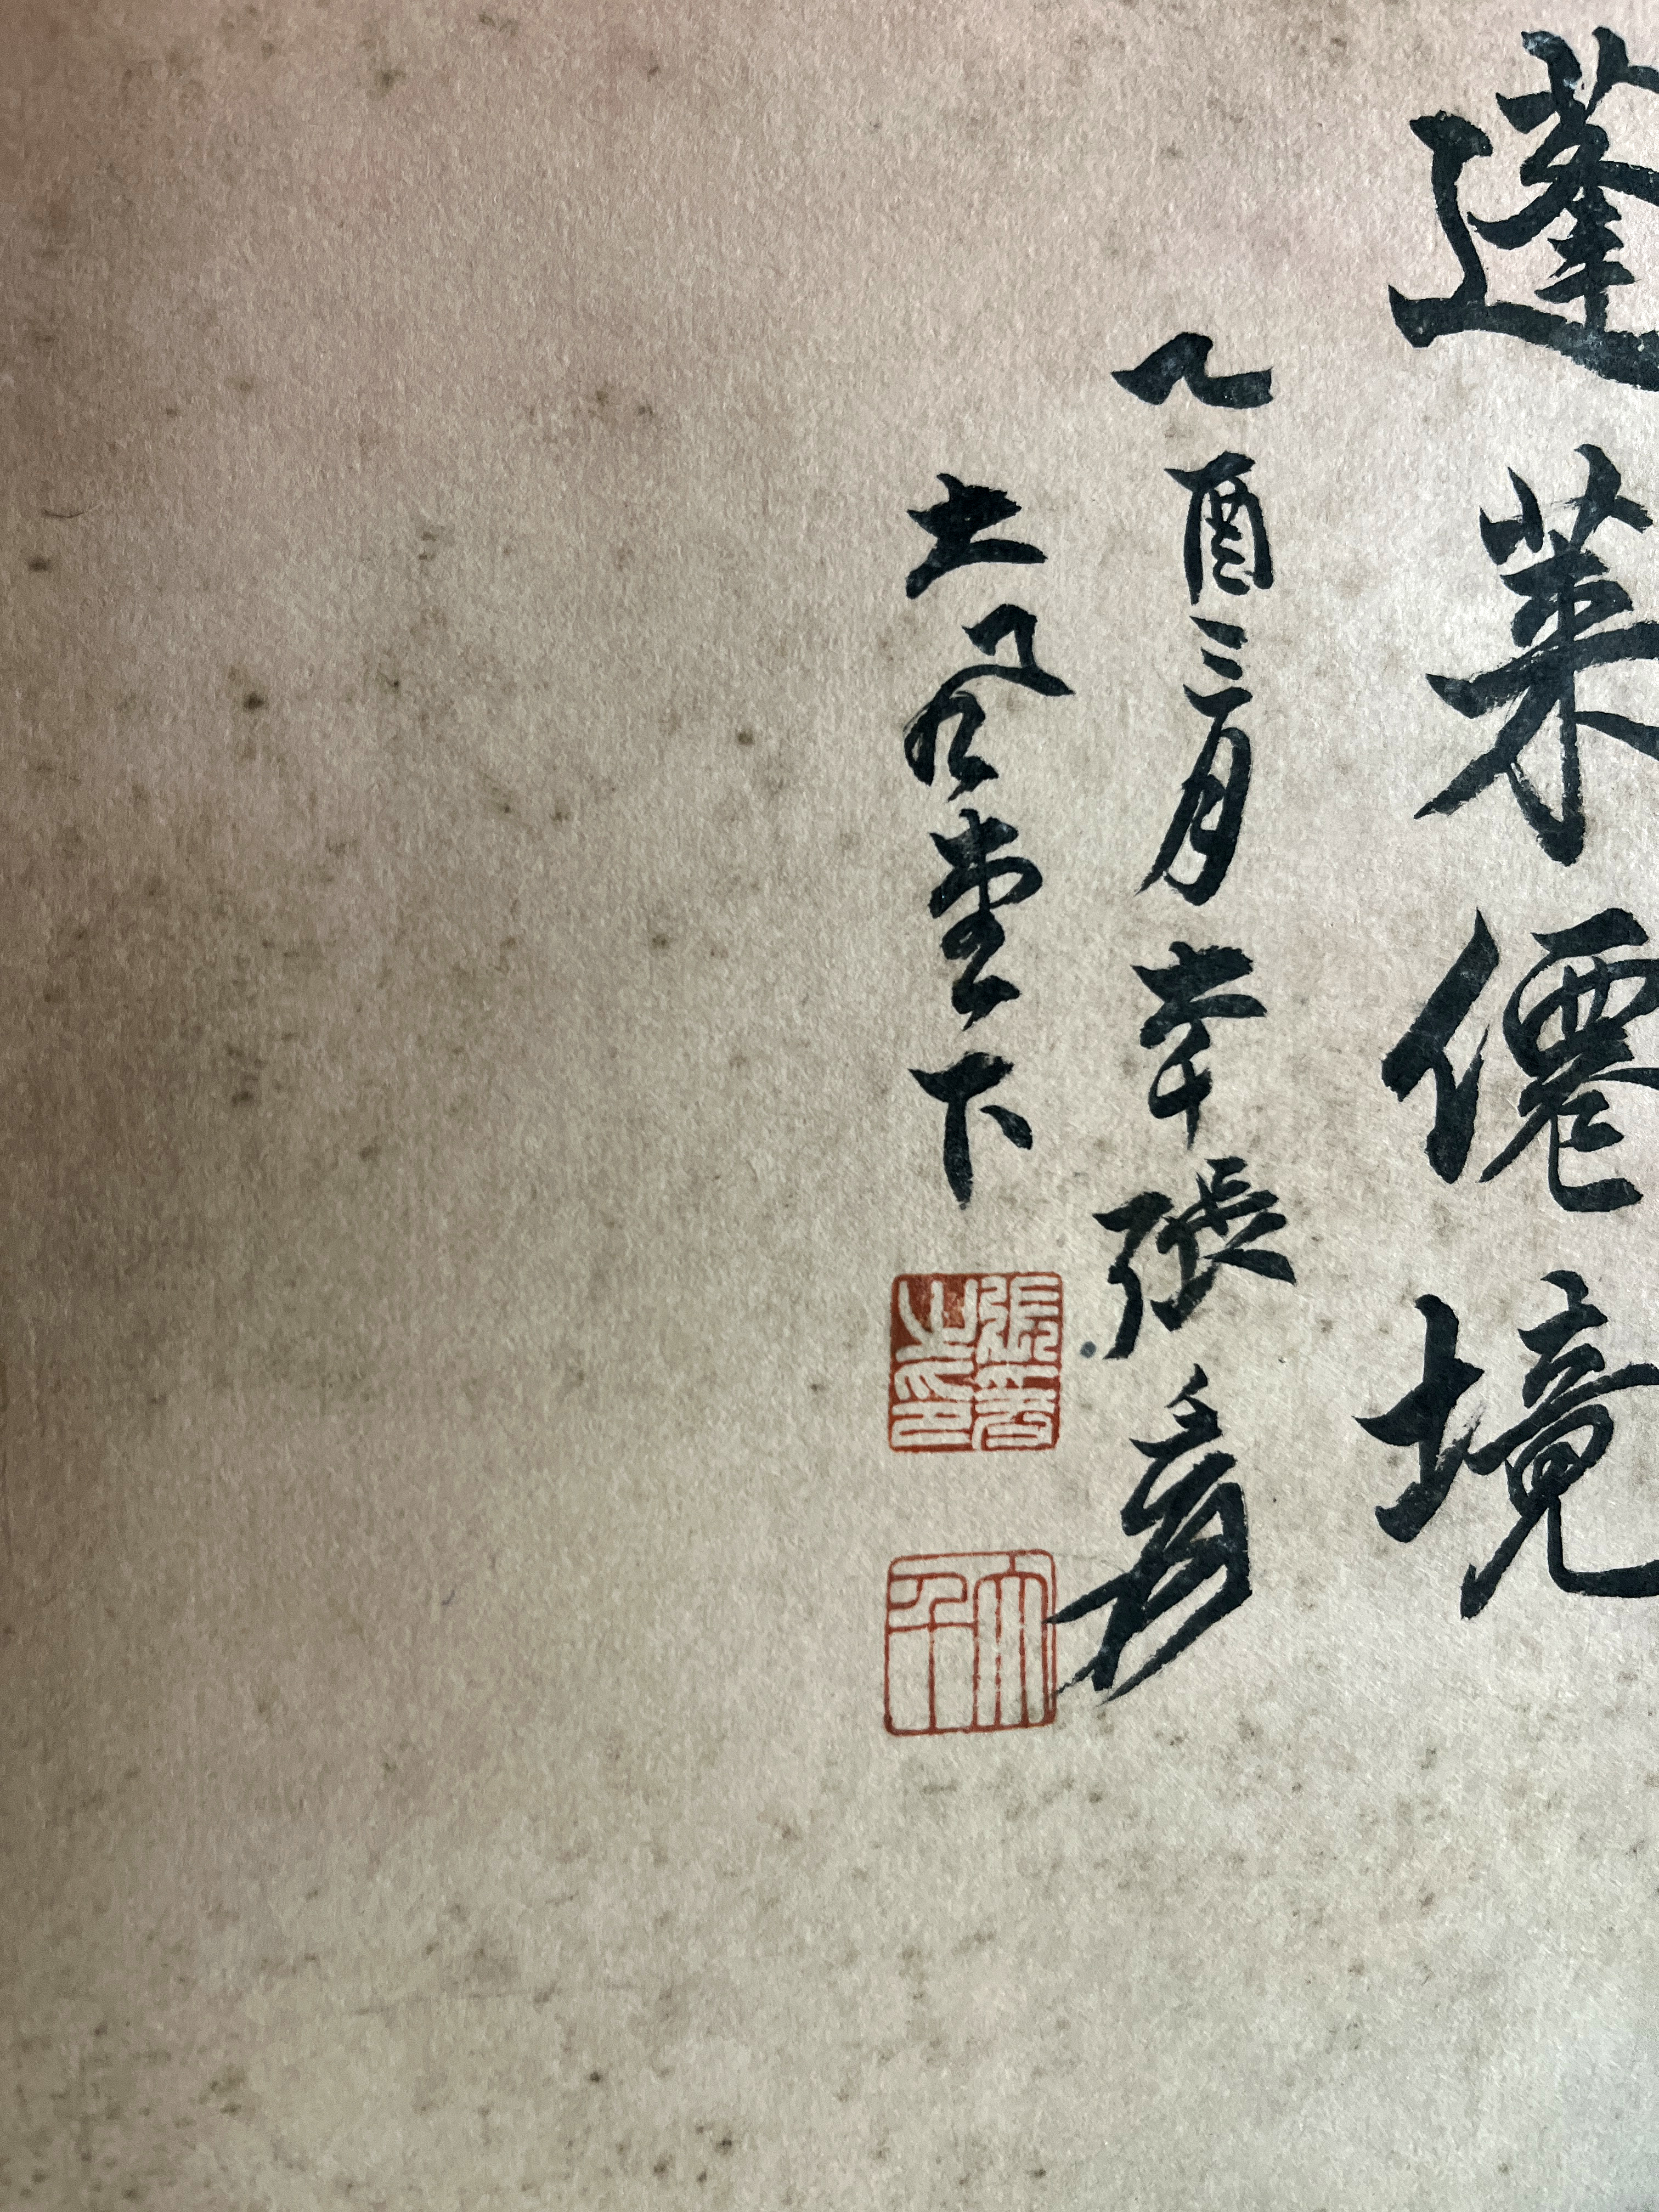 蓬萊僊境
乙酉三月幸張爰
大風堂下
張爰之印
大千